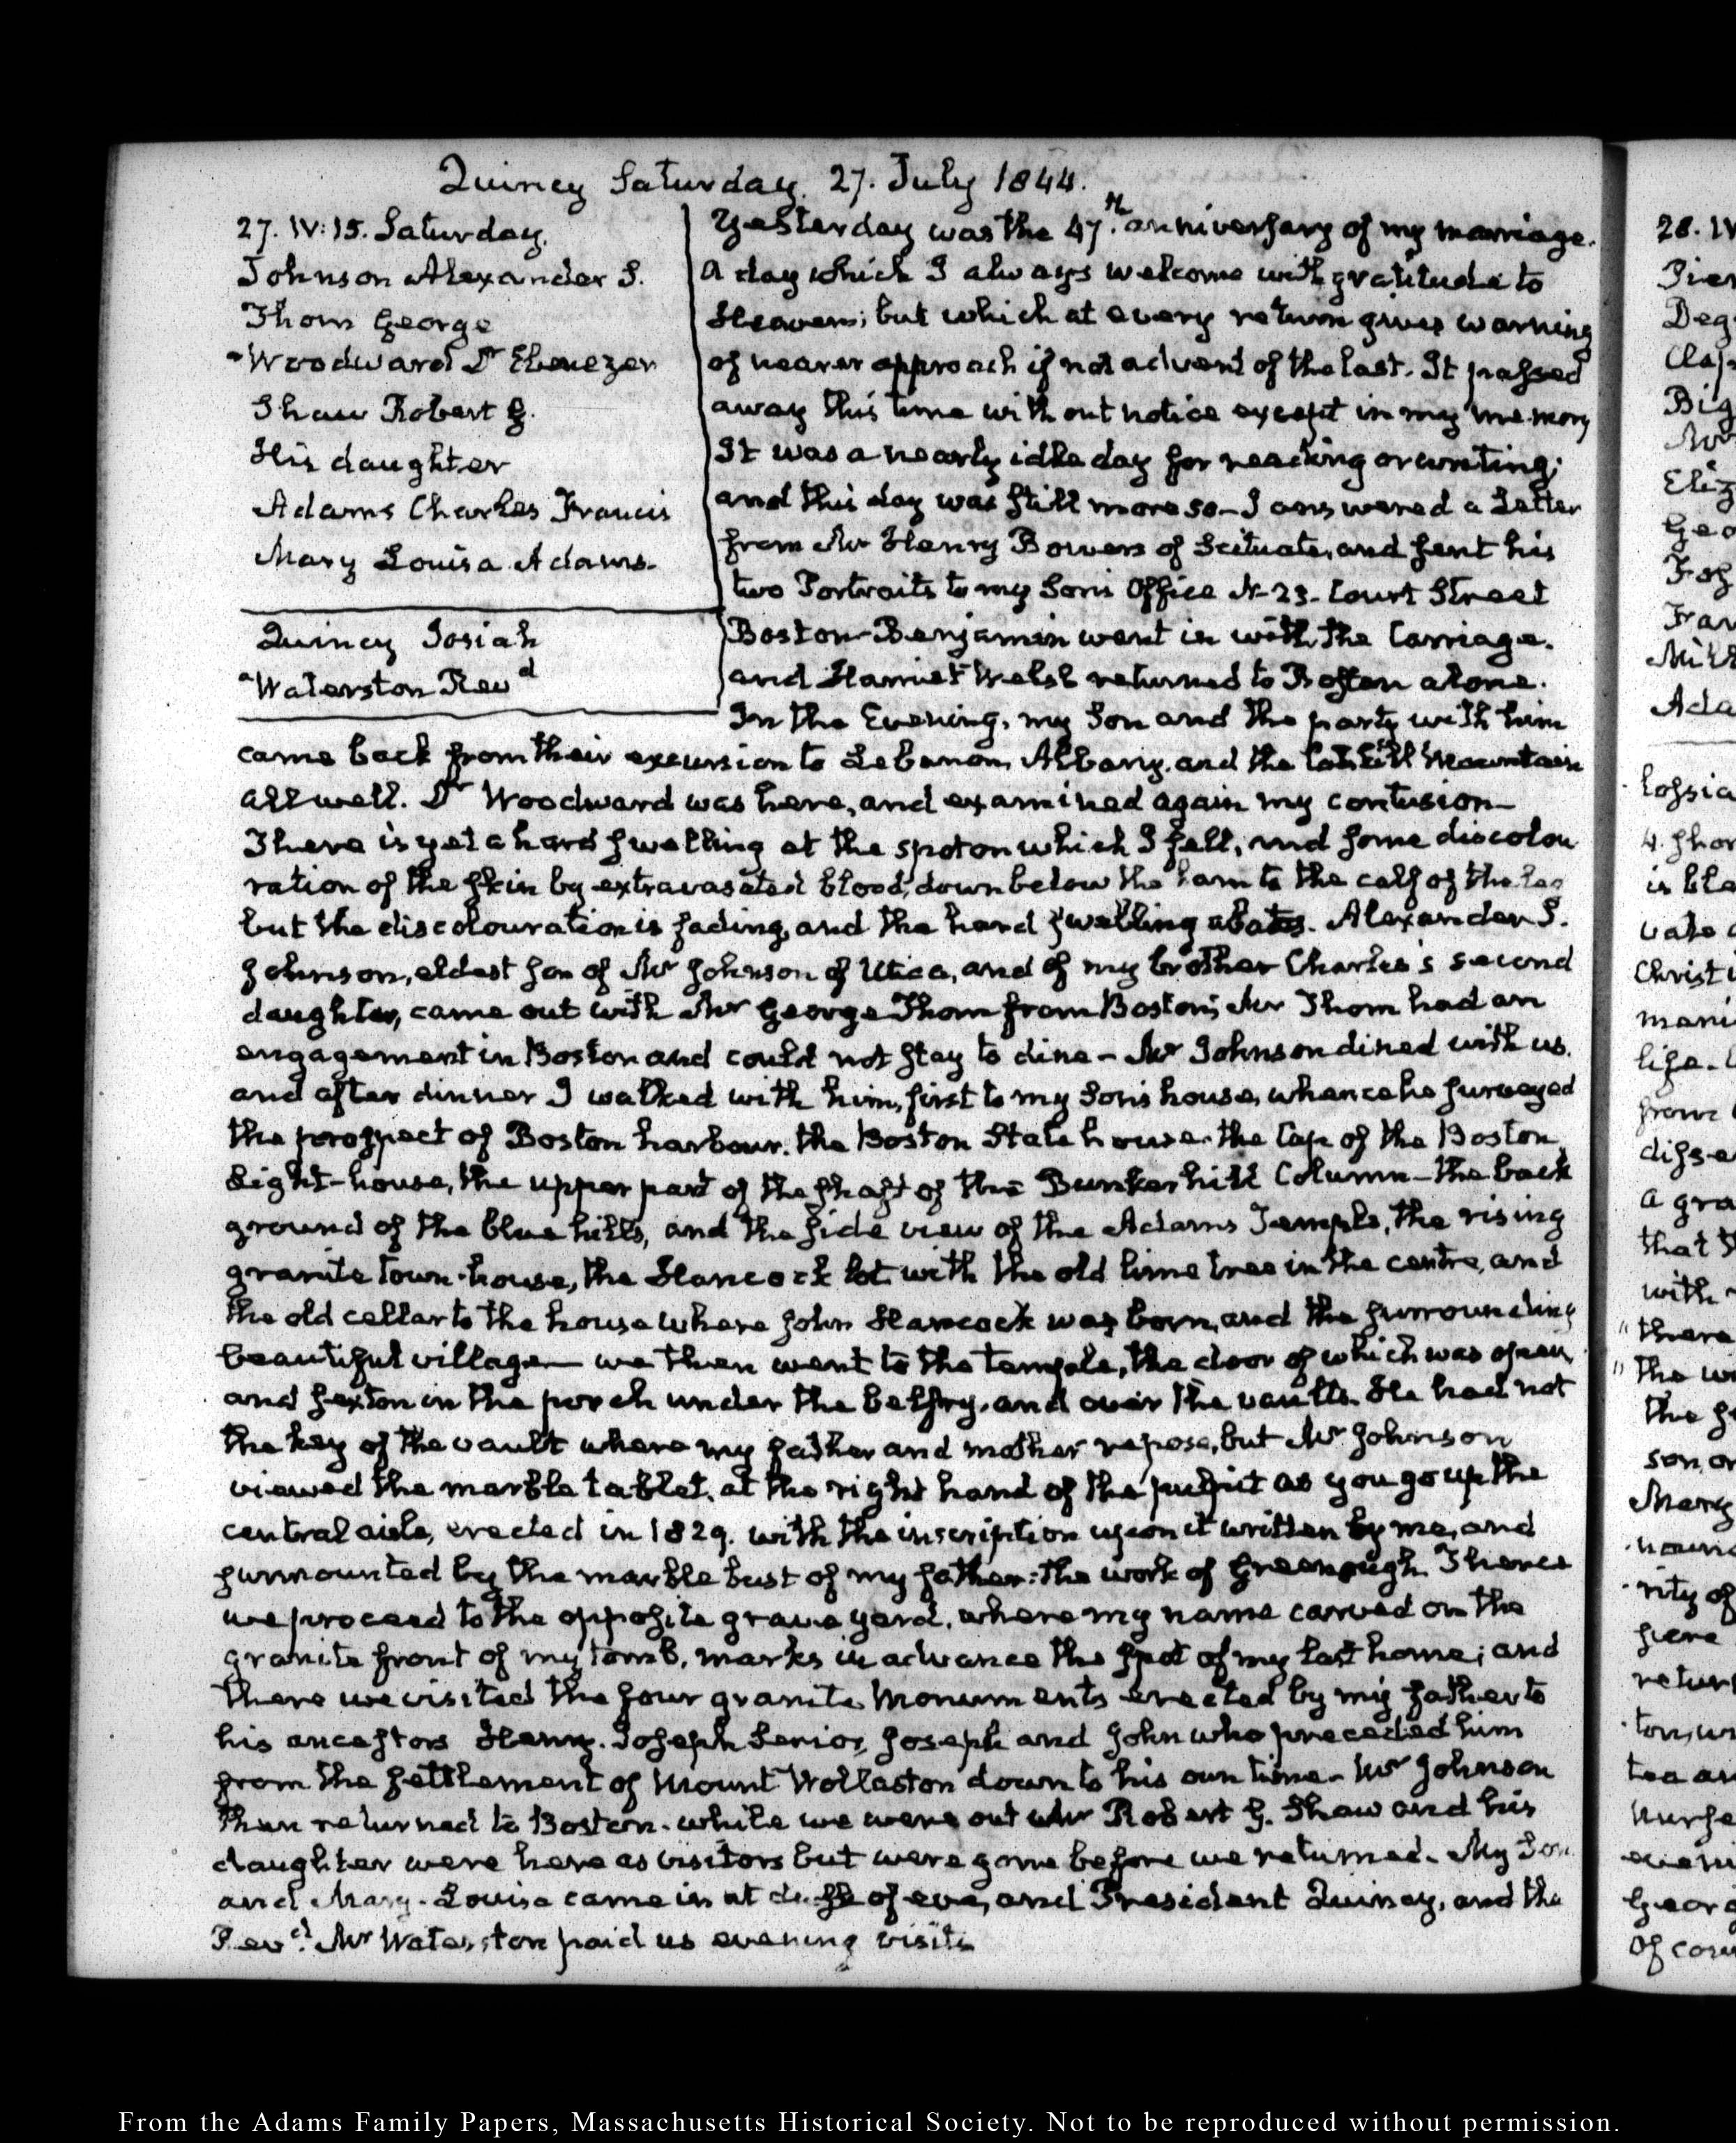 Quincy Saturday. 27. July 1844.
27. IV:15. Saturday.
Johnson Alexander S.
Thom George
Woodward Dr Ebenezer
Shaw Robert G.
His daughter
Adams Charles Francis
Mary Louisa Adams.
Quincy Josiah
Waterston Revd
Yesterday was the 47th. anniversary of my marriage.
A day which I always welcome with gratitude to
Heaven; but which at every return gives warning
of nearer approach if not advent of the last. It passed
away this time without notice except in my memory
It was a nearly idle day for reading or writing;
and this day was still more so— I answered a Letter
from Mr Henry Bowers of Scituate, and sent his
two Portraits to my Sons Office N. 23. Court Street
Boston— Benjamin went in with the Carriage.
and Harriet Welsh returned to Boston alone.
In the Evening, my Son and the party with him
came back from their excursion to Lebanon, Albany, and the Catskill Mountain
all well. Dr Woodward was here, and examined again my contusion—
There is yet a hard swelling at the spot on which I fell, and some discolou
ration of the skin by extravasated blood, down below the ham to the calf of the leg
but the discolouration is fading, and the hard swelling abates. Alexander S.
Johnson, eldest son of Mr Johnson of Utica, and of my brother Charles's second
daughter, came out with Mr George Thom from Boston; Mr Thom had an
engagement in Boston and could not stay to dine— Mr Johnson dined with us.
and after dinner I walked with him, first to my Sons house, whence he surveyed
the prospect of Boston harbour. the Boston State house. the Cap of the Boston
Light-house, the upper part of the shaft of the Bunker hill Column— the back
ground of the blue hills, and the side view of the Adams Temple, the rising
granite town-house, the Hancock lot with the old lime tree in the centre, and
the old cellar to the house where John Hancock was born, and the surrounding
beautiful village— we then went to the temple, the door of which was open
and sexton in the porch under the belfry, and over the vaults. He had not
the key of the vault where my father and mother repose, but Mr Johnson
viewed the marble tablet, at the right hand of the pulpit as you go up the
central aisle, erected in 1829. with the inscription upon it written by me, and
surmounted by the marble bust of my father: the work of Greenough. Thence
we proceed to the opposite grave yard, where my name carved on the
granite front of my tomb, marks in advance the spot of my last home; and
there we visited the four granite Monuments erected by my father to
his ancestors Henry. Joseph Senior, Joseph and John who preceded him
from the settlement of Mount Wollaston down to his own time— Mr Johnson
then returned to Boston. while we were out Mr Robert G. Shaw and his
daughter were here as visitors but were gone before we returned. My Son
and Mary-Louisa came in at dusk of eve, and President Quincy, and the
Revd. Mr Waterston paid us evening visits
From the Adams Family Papers, Massachusetts Historical Society. Not to be reproduced without permission.